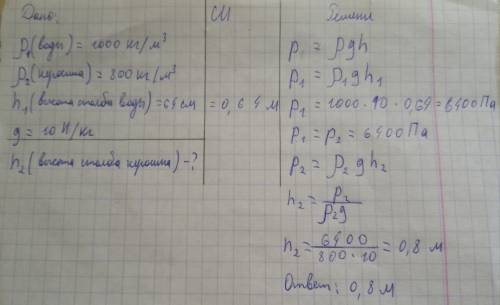 Дано:
ρ₁(воды) = 1000 кг/м³
ρ₂(керосина) = 800 кг/м³
h₁(высота столба воды) = 64 см
g = 10 Н/кг
h₂(высота столба керосина) - ?
СИ
= 0,64 м
Решение
p = ρgh
p₁ = ρ₁gh₁
p₁ = 1000 · 10 · 0,64 = 6400 Па
p₁ = p₂ = 6400 Па
p₂ = ρ₂gh₂
h₂ = p₂ / ρ₂g
h₂ = 6400 / 800 · 10 = 0,8 м
Ответ: 0,8 м